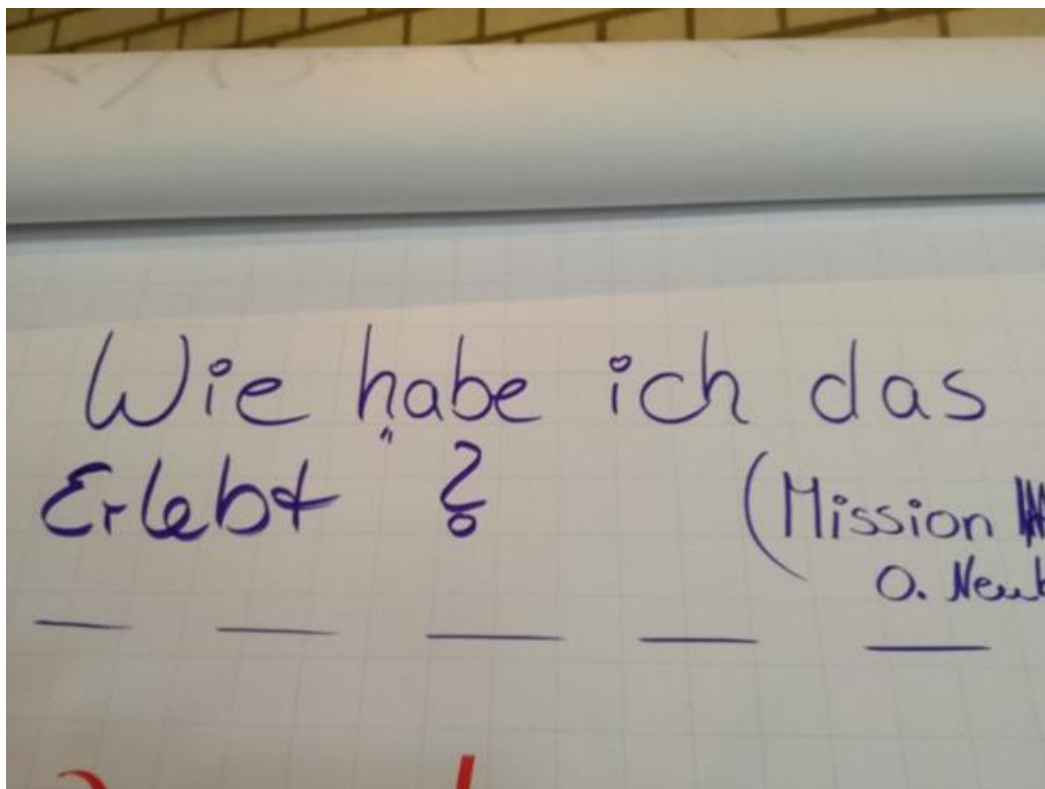 Wie habe ich das
Erlebt ?
(Mission
O.